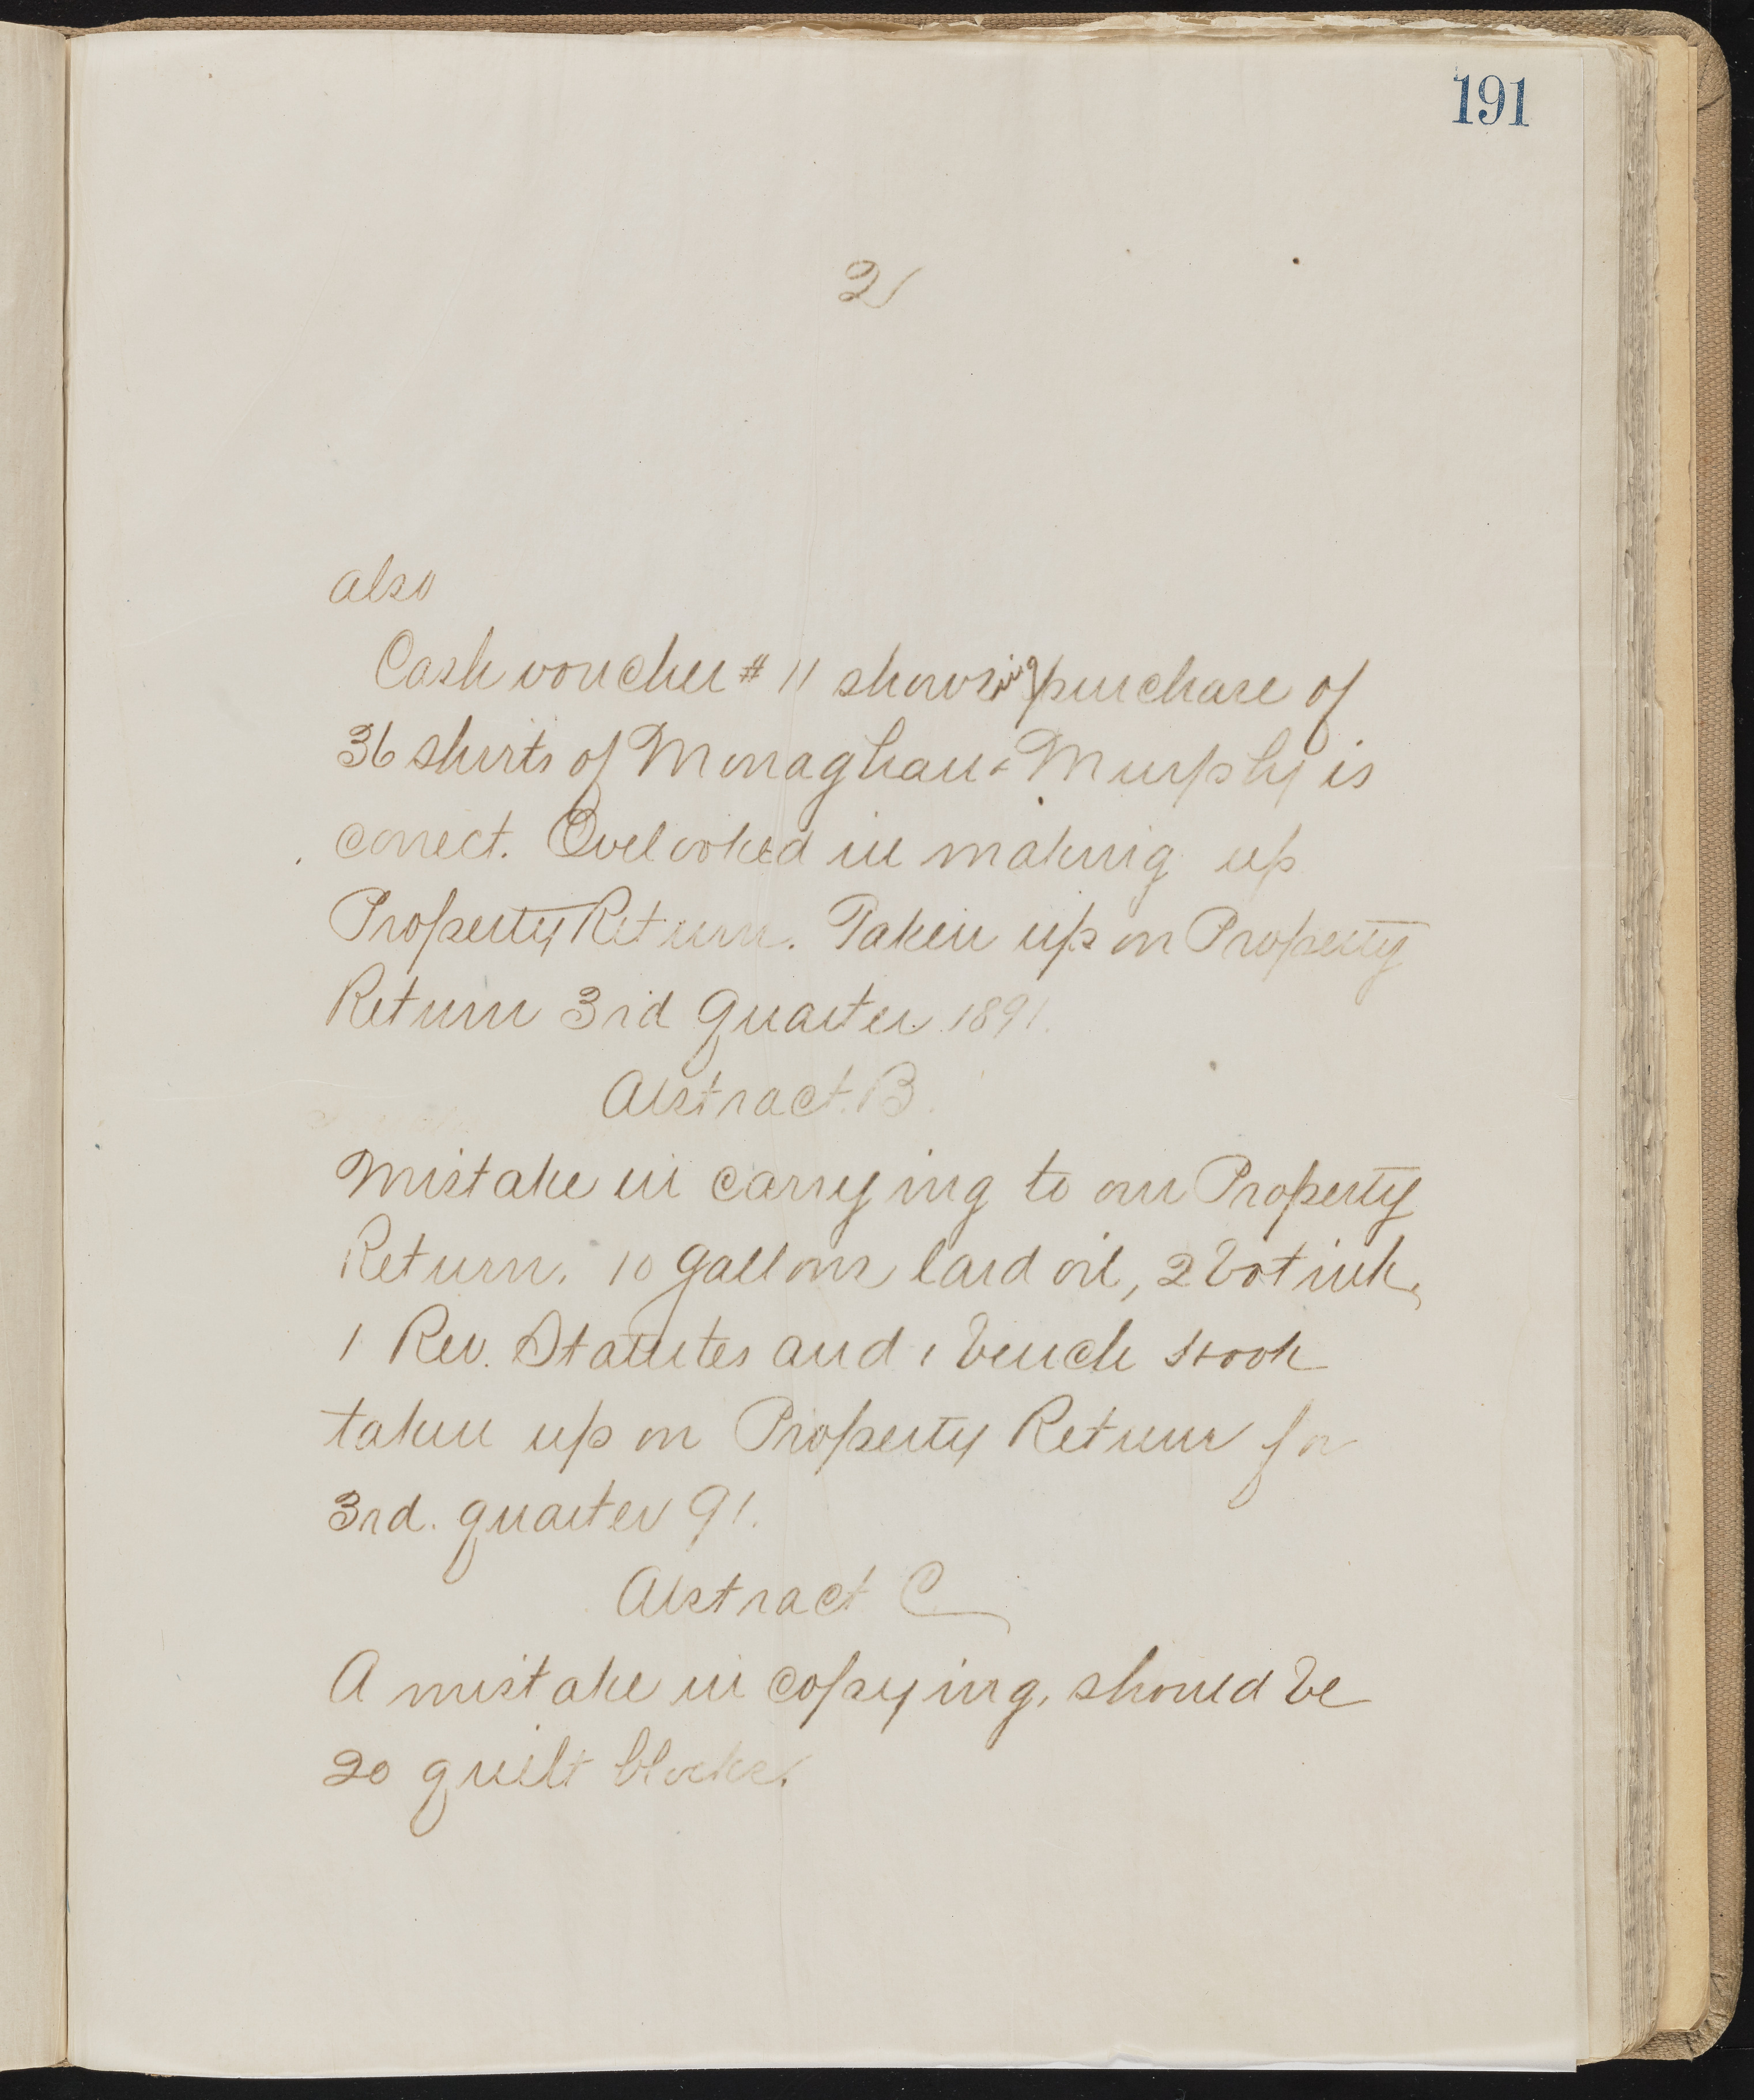 191
2/
also
Cash voucher # 11 showing purchase of
36 shirts of Monaghan & Murphy is
correct. Overlooked in making up
Property Return. Taken up on Property
Return 3rd Quarter 1891.
Abstract B.
Mistake in carrying to on Property
Return. 10 gallons lard oil, 2 bot ink,
1 Rev. Statutes and 1 bench
taken up on Property Return for
3rd. quarter 91.
Abstract C
A mistake in copying, should be
20 quilt blocks.